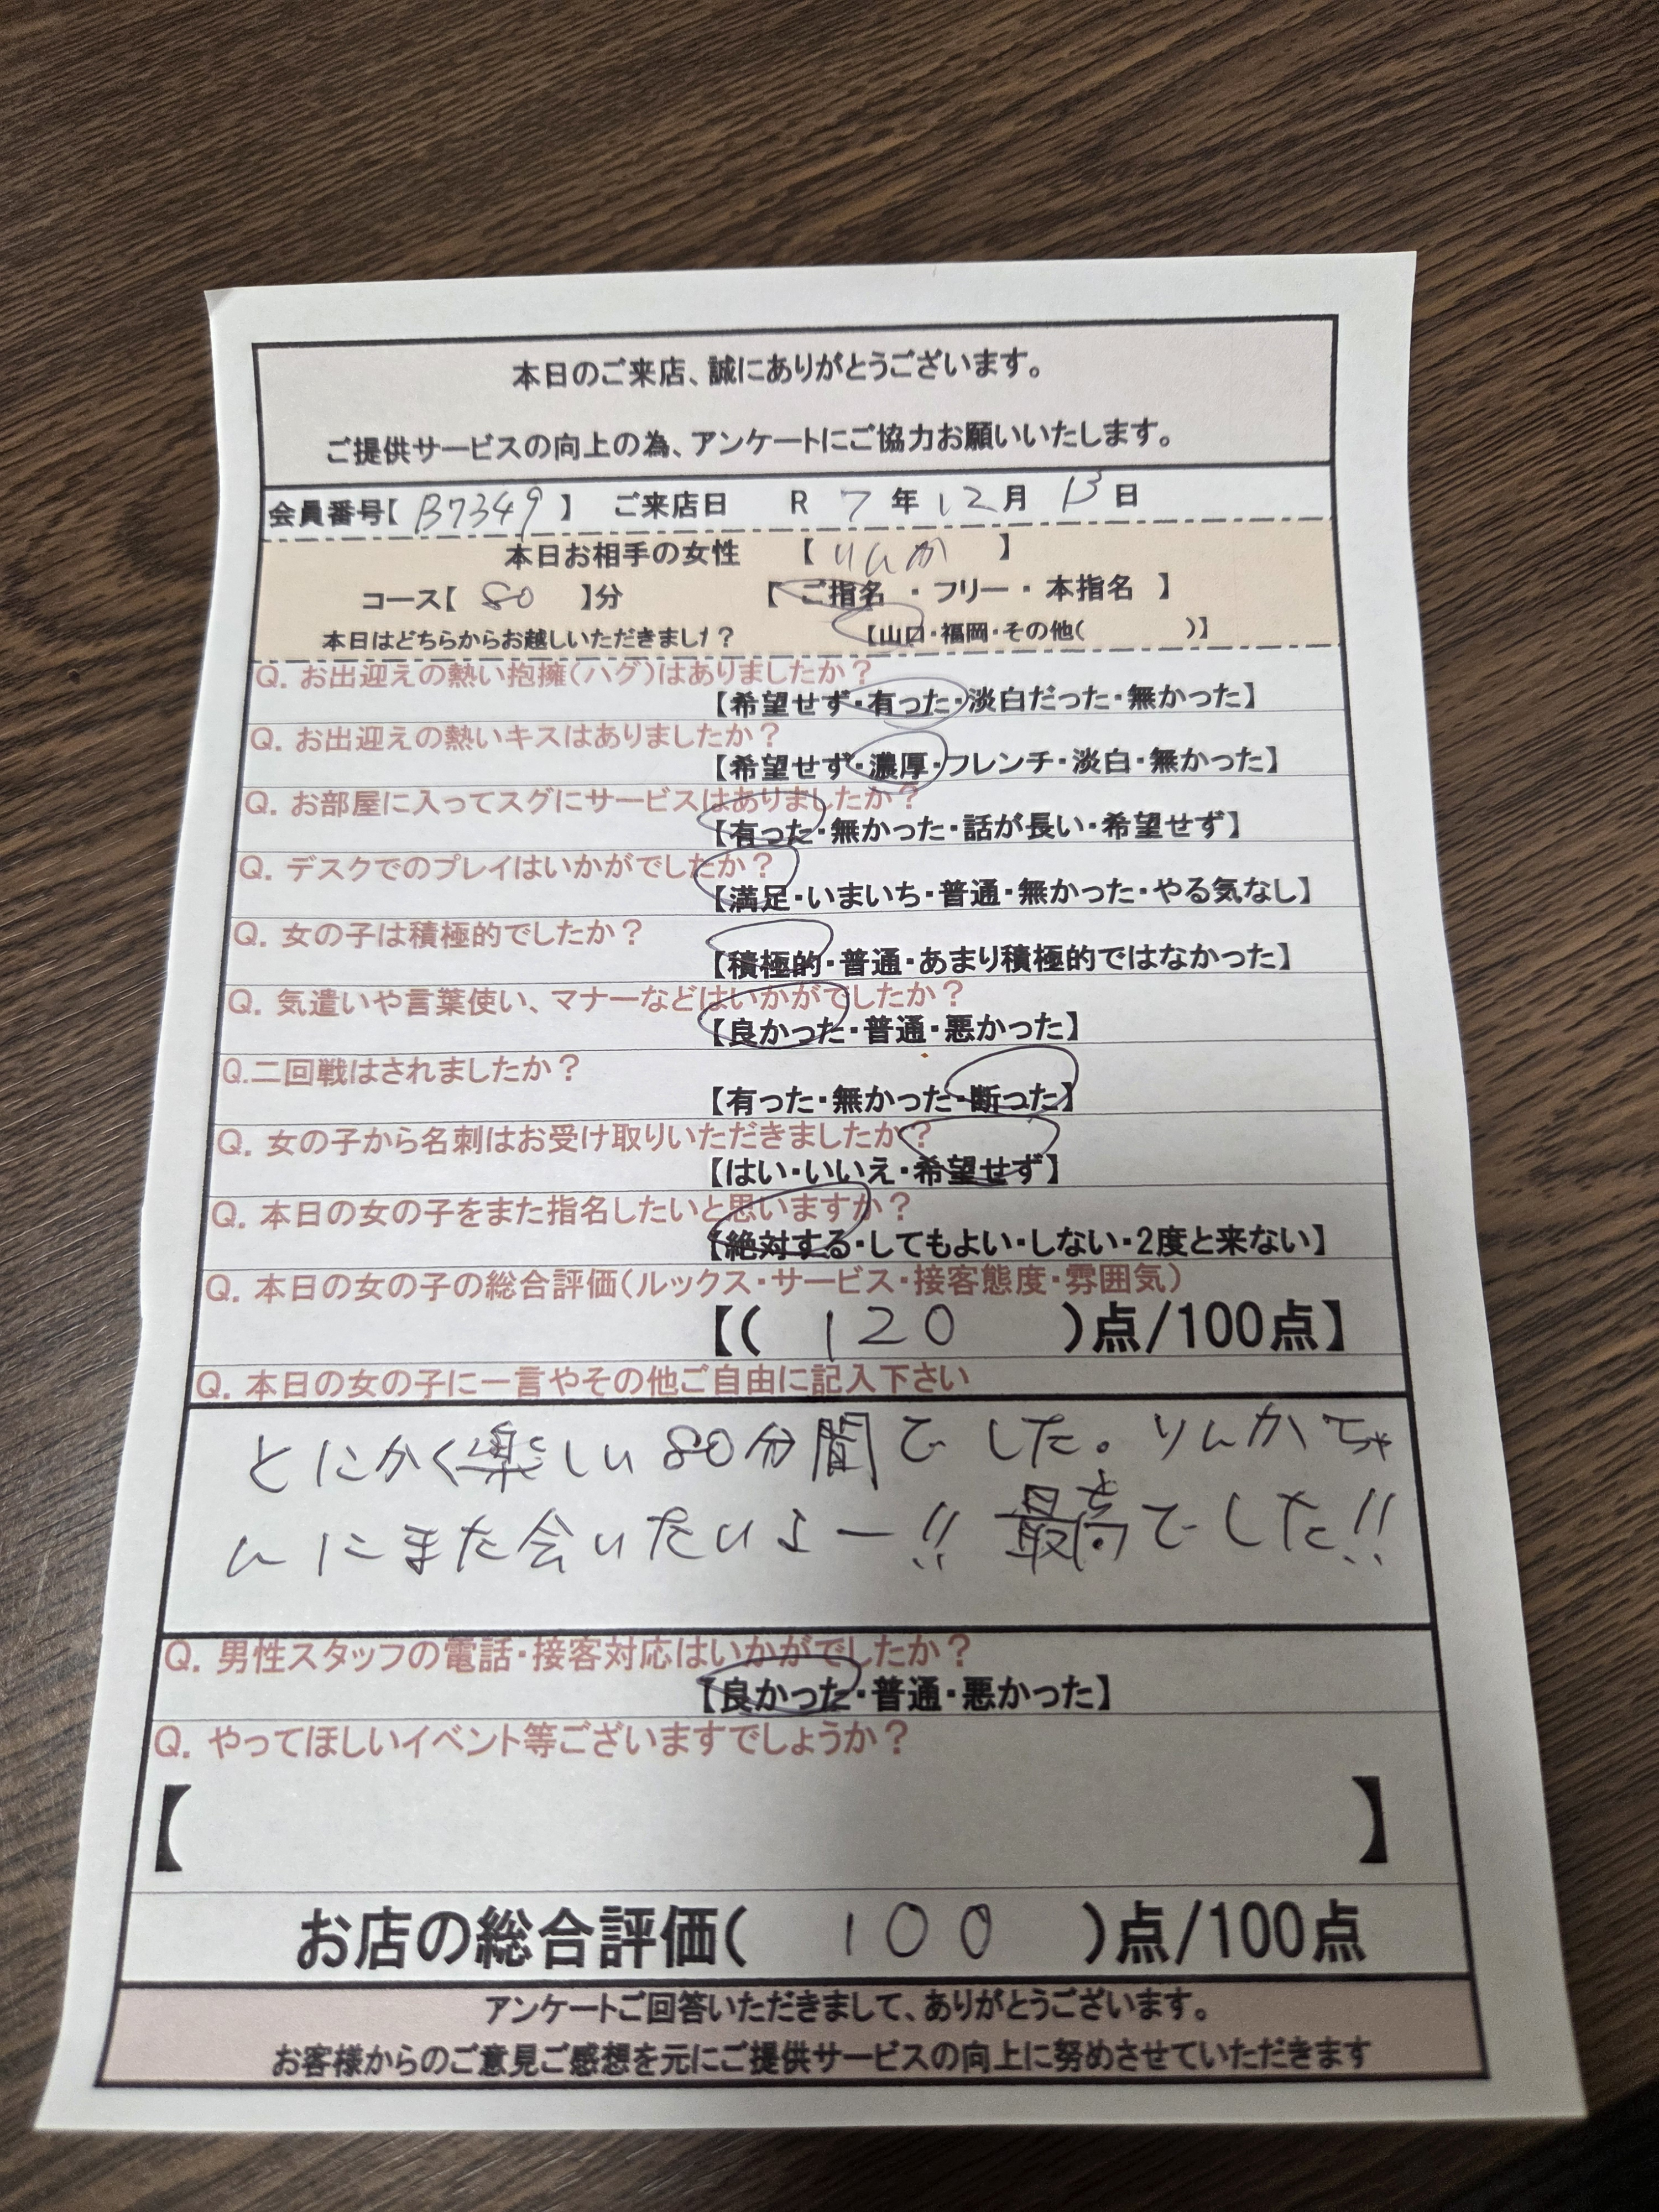 本日のご来店、誠にありがとうございます。
ご提供サービスの向上の為、アンケートにご協力お願いいたします。
会員番号【 B7349 】 ご来店日 R 7 年 12 月 13 日
本日お相手の女性 【 りんか 】
コース【 80 】分 【 ご指名 ・ フリー ・ 本指名 】
本日はどちらからお越しいただきまし？ 【山口・福岡・その他( )】
Q. お出迎えの熱い抱擁(ハグ)はありましたか？
【希望せず・有った・淡白だった・無かった】
Q. お出迎えの熱いキスはありましたか？
【希望せず・濃厚・フレンチ・淡白・無かった】
Q. お部屋に入ってスグにサービスはありましたか？
【有った・無かった・話が長い・希望せず】
Q. デスクでのプレイはいかがでしたか？
【満足・いまいち・普通・無かった・やる気なし】
Q. 女の子は積極的でしたか？
【積極的・普通・あまり積極的ではなかった】
Q. 気遣いや言葉使い、マナーなどはいかがでしたか？
【良かった・普通・悪かった】
Q.二回戦はされましたか？
【有った・無かった・断った】
Q. 女の子から名刺はお受け取りいただきましたか？
【はい・いいえ・希望せず】
Q. 本日の女の子をまた指名したいと思いますか？
【絶対する・してもよい・しない・2度と来ない】
Q. 本日の女の子の総合評価(ルックス・サービス・接客態度・雰囲気)
【( 120 )点/100点】
Q. 本日の女の子に一言やその他ご自由に記入下さい
とにかく楽しい80分間でした。りんかちゃ
んにまた会いたいよー!! 最高でした!!
Q. 男性スタッフの電話・接客対応はいかがでしたか？
【良かった・普通・悪かった】
Q. やってほしいイベント等ございますでしょうか？
【 】
お店の総合評価( 100 )点/100点
アンケートご回答いただきまして、ありがとうございます。
お客様からのご意見ご感想を元にご提供サービスの向上に努めさせていただきます